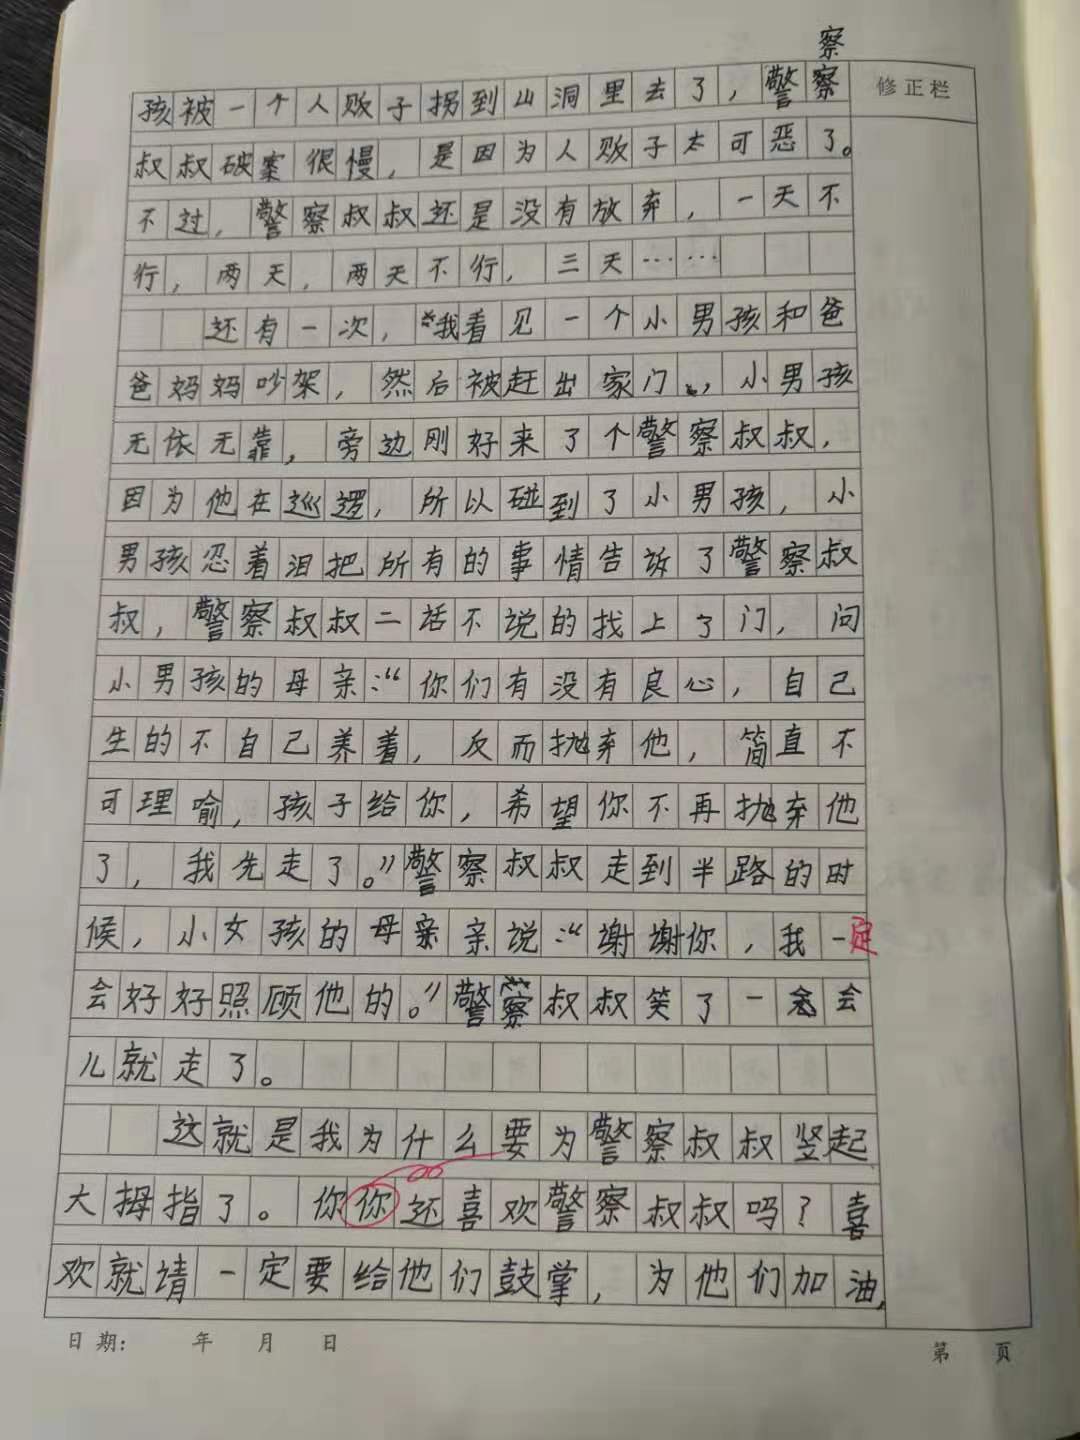 察
修正栏
孩被一个人贩子拐到山洞里去了，警察
叔叔破案很慢，是因为人贩子太可恶了。
不过，警察叔叔还是没有放弃，一天不
行，两天，两天不行，三天……
还有一次，我看见一个小男孩和爸
爸妈妈吵架，然后被赶出家门，小男孩
无依无靠，旁边刚好来了个警察叔叔，
因为他在巡逻，所以碰到了小男孩，小
男孩忍着泪把所有的事情告诉了警察叔
叔，警察叔叔二话不说的找上了门，问
小男孩的母亲：“你们有没有良心，自己
生的不自己养着，反而抛弃他，简直不
可理喻，孩子给你，希望你不再抛弃他
了，我先走了。”警察叔叔走到半路的时
候，小女孩的母亲亲说：“谢谢你，我一定
会好好照顾他的。”警察叔叔笑了一会
儿就走了。
这就是我为什么要为警察叔叔竖起
大拇指了。你你还喜欢警察叔叔吗？喜
欢就请一定要给他们鼓掌，为他们加油，
日期： 年 月 日
第 页